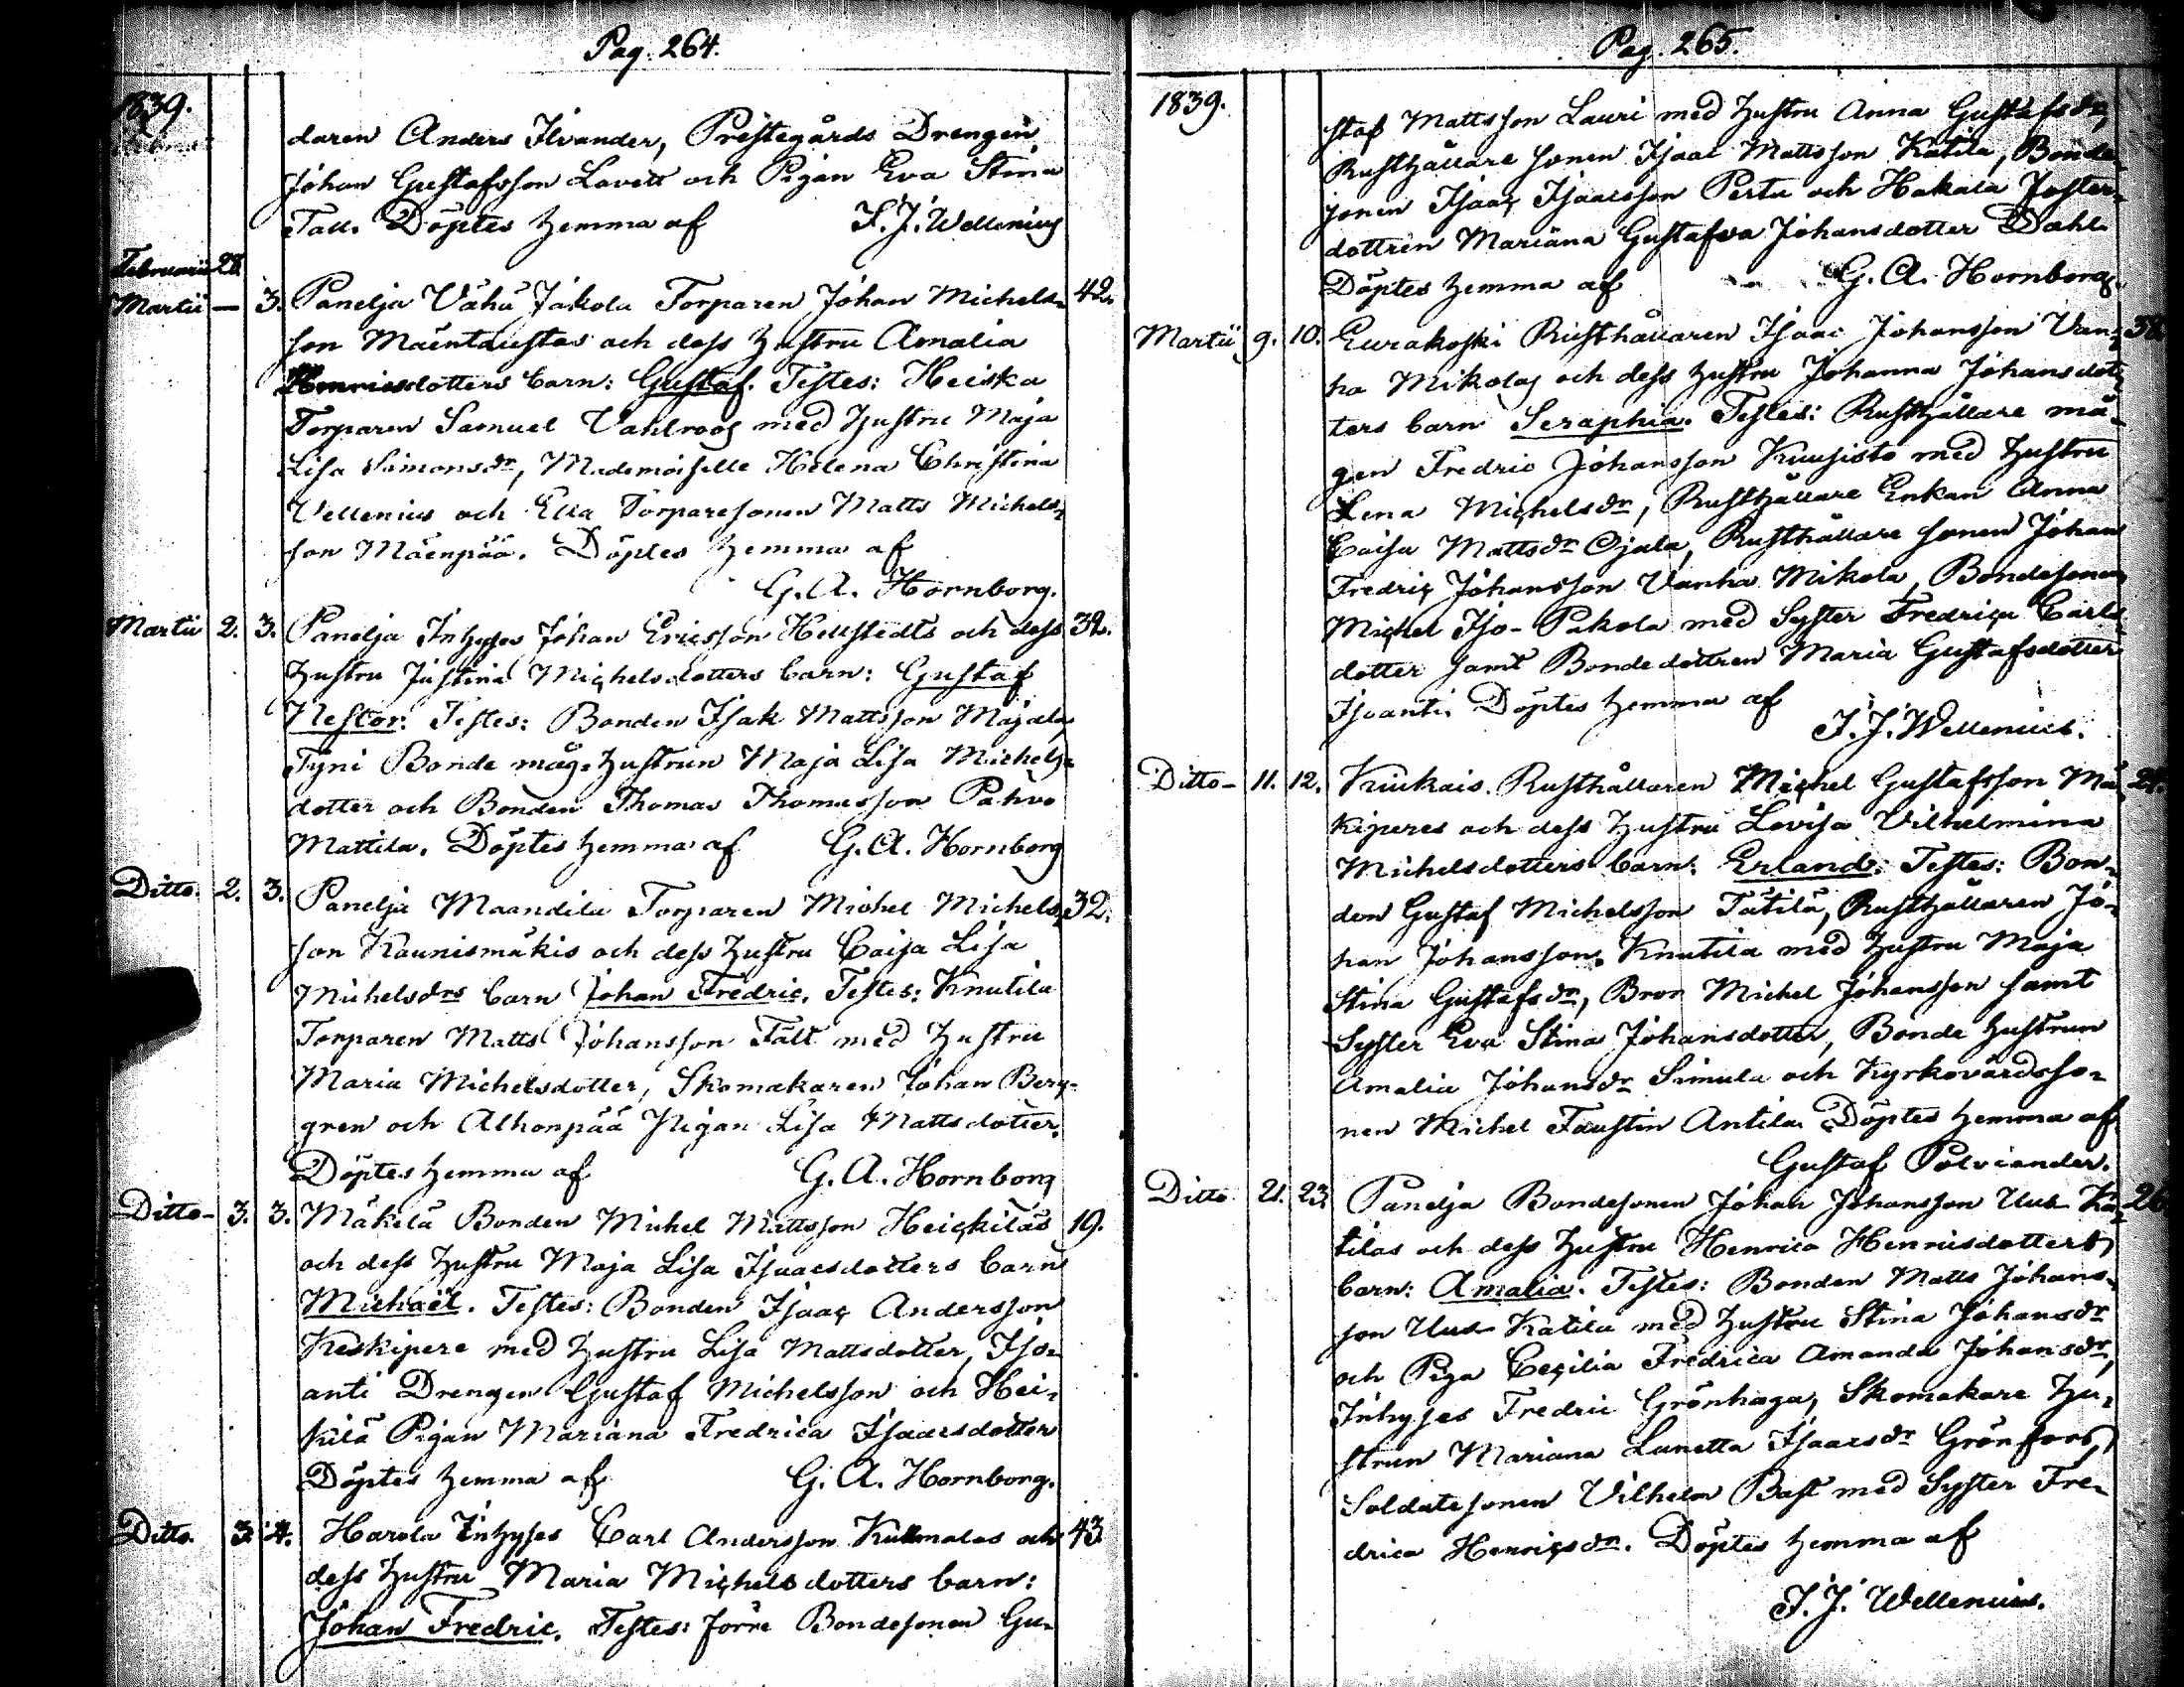 Pag. 264.
1839.
daren Anders Ilvander, Prestegårds Drengen
Johan Gustafsson Lavett och Pigan Eva Stina
Tall. Döptes hemma af F. J. Wellenius
Februarii 28
Martii — 3. Panelja Vähä Jakola Torparen Johan Michels- 42.
son Mäentaustas och dess hustru Amalia
Henricsdotters barn: Gustaf. Testes: Heiska
Torparen Samuel Vahlroos med hustru Maja
Lisa Simonsdr, Mademoiselle Helena Christina
Vellenius och Ella Torparesonen Matts Michels-
son Mäenpää. Döptes hemma af
G. A. Hornborg.
Martii 2. 3. Panelja Inhyses Johan Ericsson Hellstedts och dess 32.
hustru Justina Michelsdotters barn: Gustaf
Nestor: Testes: Bonden Isak Mattsson Majala,
Tyni Bonde måg-hustrun Maja Lisa Michels-
dotter och Bonden Thomas Thomasson Pahvo
Mattila. Döptes hemma af G. A. Hornborg
Ditto. 2. 3. Panelja Maandila Torparen Michel Michels- 32.
son Kaunismäkis och dess hustru Caisa Lisa
Michelsdrs barn Johan Fredric. Testes: Knutila
Torparen Matts Johansson Fält med hustru
Maria Michelsdotter, Skomakaren Johan Berg-
gren och Alhonpää Pigan Lisa Mattsdotter.
Döptes hemma af G. A. Hornborg
Ditto- 3. 3. Mäkelä Bonden Michel Mattsson Heickiläs 19.
och dess hustru Maja Lisa Isaacsdotters barn
Michaël. Testes: Bonden Isaac Andersson
Keskipere med hustru Lisa Mattsdotter, Iso-
anti Drengen Gustaf Michelsson och Hei-
kilä Pigan Mariana Fredrica Isaacsdotter
Döptes hemma af G. A. Hornborg.
Ditto. 3. 4. Harola Inhyses Carl Andersson Kullmalas och 43
dess hustru Maria Michelsdotters barn:
Johan Fredric. Testes: Jorre Bondesonen Gu-
Pag. 265.
1839.
staf Mattsson Lauri med hustru Anna Gustafsdr,
Rusthållare sonen Isaac Mattsson Katila, Bonde-
sonen Isaac Isaacsson Pertu och Hakala Foster-
dottren Mariana Gustafva Johansdotter Dahl.
Döptes hemma af G. A. Hornborg.
Martii 9. 10. Eurakoski Rusthållaren Isaac Johansson Van-
ha Mikolas och dess hustru Johanna Johansdot-
ters barn Seraphia. Testes: Rusthållare må-
gen Fredric Johansson Kuusisto med hustru
Lena Michelsdr, Rusthållare Enkan Anna
Caisa Mattsdr Ojala, Rusthållare sonen Johan
Fredric Johansson Vanha Mikola, Bondesonen
Michel Iso-Pakola med Syster Fredrica Carls-
dotter samt Bondedottren Maria Gustafsdotter
Isoanti. Döptes hemma af
F. J. Wellenius.
Ditto- 11. 12. Kiukais. Rusthållaren Michel Gustafsson Mä-
kiperes och dess hustru Lovisa Vilhelmina
Michelsdotters barn: Erland: Testes: Bon-
den Gustaf Michelsson Tätilä, Rusthållaren Jo-
han Johansson Knutila med hustru Maja
Stina Gustafsdr, Bror Michel Johansson samt
Syster Eva Stina Johansdotter, Bonde hustrun
Amalia Johansdr Simula och Kyrkovärdsso-
nen Michel Faustin Antila. Döptes hemma af
Gustaf Polviander.
Ditto 21. 23. Panelja Bondesonen Johan Johansson Uus Ka- 26
tilas och dess hustru Henrica Henricsdotters
barn: Amalia. Testes: Bonden Matts Johans-
son Uus Katila med hustru Stina Johansdr
och Piga Cecilia Fredrica Amanda Johansdr,
Inhyses Fredric Grönhaga, Skomakare hu-
strun Mariana Lunetta Isaacsdr Grönfors,
Soldatesonen Vilhelm Bast med Syster Fre-
drica Henricsdr. Döptes hemma af
F. J. Wellenius.